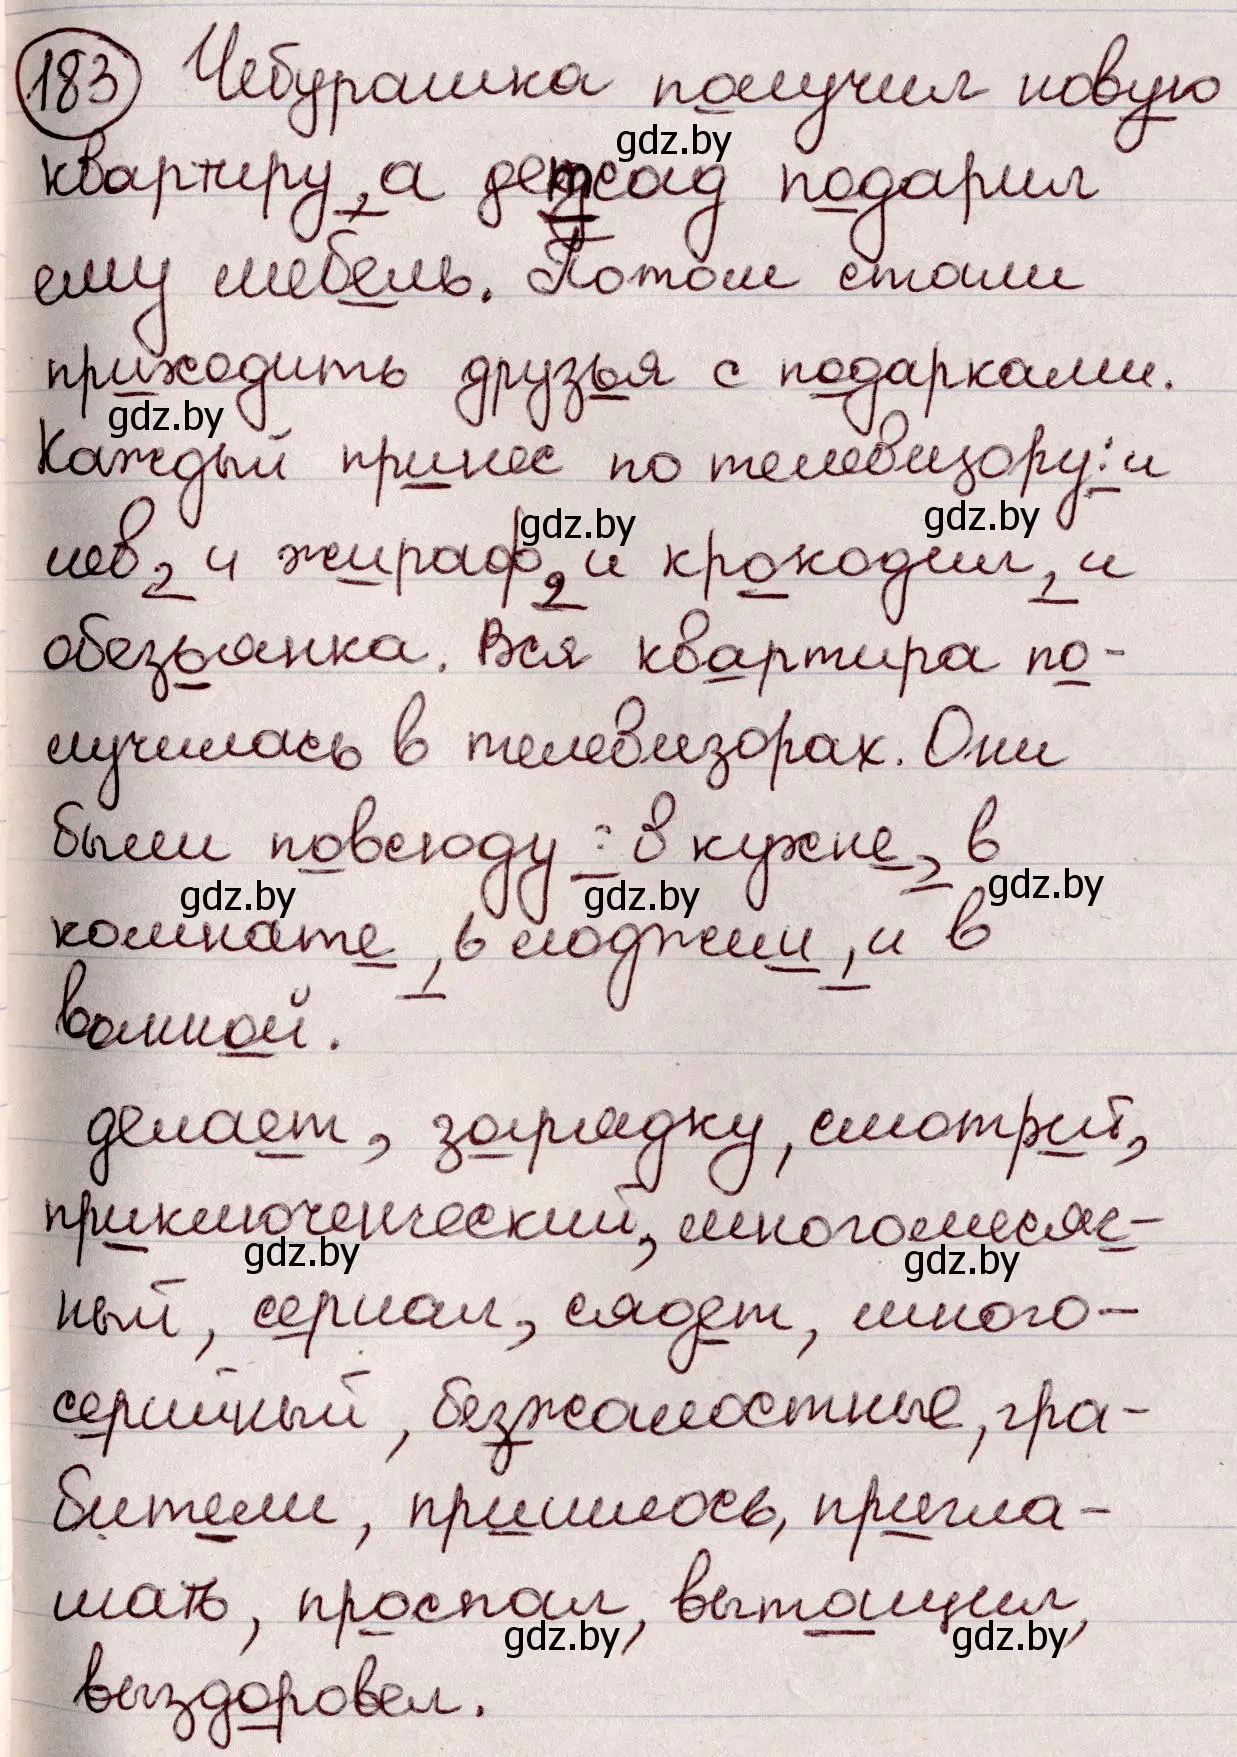 183 Чебурашка получил новую
gdz.by
квартиру, а детсад подарил
ему мебель. Потом стали
приходить друзья с подарками.
gdz.by
Каждый принес по телевизору: и
gdz.by gdz.by
лев, и жираф, и крокодил, и
обезьянка. Вся квартира по-
лучилась в телевизорах. Они
были повсюду: в кухне, в
gdz.by gdz.by gdz.by
комнате, в лоджии, и в
ванной.
делает, зарядку, смотрит,
приключенческий, многомесяч-
gdz.by gdz.by
ный, сериал, сядет, много-
серийный, безжалостные, гра-
бители, пришлось, пригла-
шать, проспал, вытащил,
gdz.by gdz.by
выздоровел.